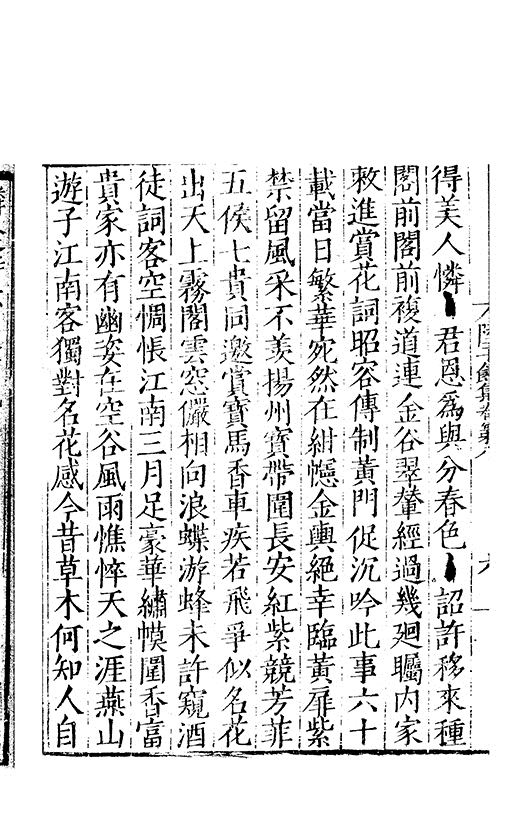 得美人憐君恩爲與分春色詔許移來種
閣前閣前複道連金谷翠輦經過幾廻矚内家
敕進賞花詞昭容傳制黃門促沉吟此事六十
載當日繁華宛然在紺幰金輿絕幸臨黃扉紫
禁留風采不羨揚州寶帶圍長安紅紫競芳菲
五侯七貴同邀賞寶馬香車疾若飛爭似名花
出天上霧閣雲窓儼相向浪蝶游蜂未許窺酒
徒詞客空惆悵江南三月足豪華繡幙圍香富
貴家亦有幽姿在空谷風雨憔悴天之涯燕山
遊子江南客獨對名花感今昔草木何知人自